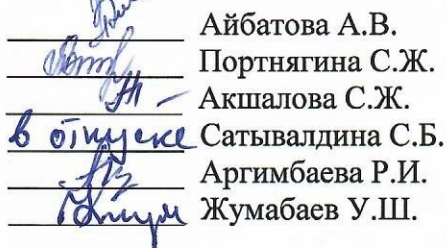 Айбатова А.В.
Портнягина С.Ж.
Акшалова С.Ж.
в отпуске Сатывалдина С.Б.
Аргимбаева Р.И.
Жумабаев У.Ш.